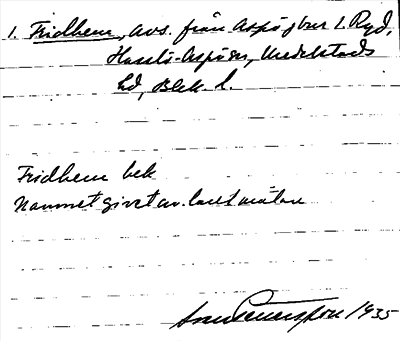 1. Fridhem, avs. från Aspö 1 Ryd,
Hasslö-Aspö sn, Medelstads
hd, Blek. l.
Fridhem bek
Namnet givet av lantmätare
1935